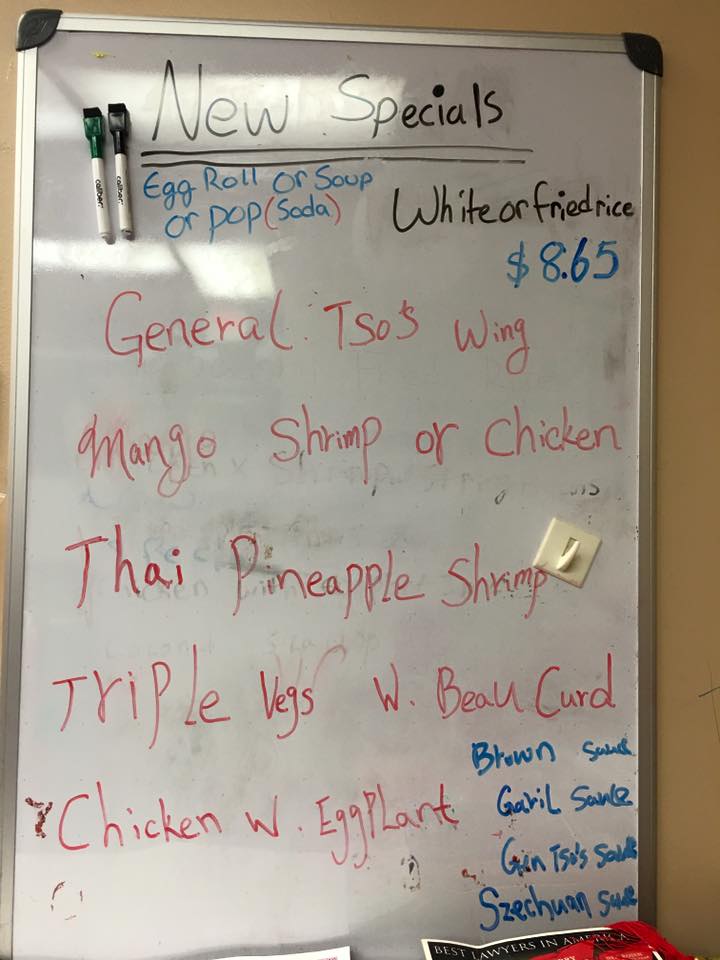 New Specials
caliber.
caliber.
Egg Roll or Soup
or pop (Soda)
White or fried rice
$8.65
General Tso's Wing
Mango Shrimp or Chicken
Thai Pineapple Shrimp
Triple Vegs W. Beau Curd
Brown Sauce
Chicken W. EggPlant
Garil Sauce
Gen Tso's Sauce
Szechuan Sauce
BEST LAWYERS IN AMERICA